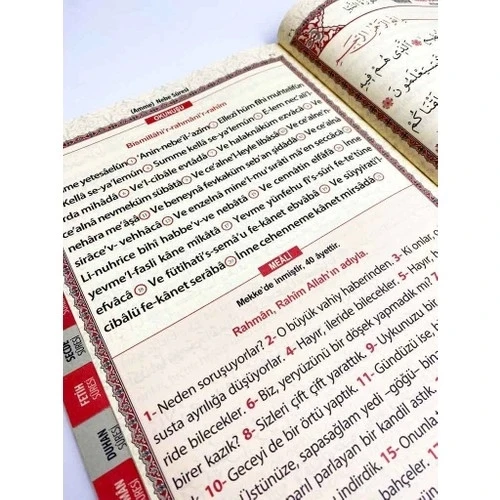 (Amme) Nebe Sûresi
OKUNUŞU
Bismillâhi'r-rahmâni'r-rahîm
me yetesâelûn Anin-nebe'il-'azîm Ellezî hüm fîhi muhtelifûn
Kellâ se-ya'lemûn Sümme kellâ se-ya'lemûn E-lem nec'ali'l
rda mihâdâ Ve'l-cibâle evtâdâ Ve halaknâküm ezvâcâ Ve
ce'alnâ nevmeküm sübâtâ Ve ce'alne'l-leyle libâsâ Ve ce'alne'n
nehâra me'âşâ Ve beneynâ fevkaküm seb'an şidâdâ Ve ce'alnâ
sirâce'v- vehhâcâ Ve enzelnâ mine'l-mu'sırâti mâ'en seccâcâ
Li-nuhrice bihî habbe'v-ve nebâtâ Ve cennâtin elfâfâ İnne
yevme'l-fasli kâne mîkâtâ Yevme yünfehu fi's-sûri fe-te'tûne
efvâcâ Ve fütihati's-semâ'u fe-kânet ebvâbâ Ve süyyirati'l
cibâlü fe-kânet serâbâ İnne cehenneme kânet mirsâdâ
MEALİ
Mekke'de inmiştir. 40 âyettir.
Rahmân, Rahîm Allah'ın adıyla.
1- Neden soruşuyorlar? 2- O büyük vahiy haberinden. 3- Ki onlar,
susta ayrılığa düşüyorlar. 4- Hayır, ileride bilecekler. 5- Hayır,
ride bilecekler. 6- Biz, yeryüzünü bir döşek yapmadık mı?
birer kazık? 8- Sizleri çift çift yarattık. 9- Uykunuzu bir
10- Geceyi de bir örtü yaptık. 11- Gündüzü ise,
Üstünüze, sapasağlam yedi -göğü- bina
parıl parlayan bir kandil astık.
indirdik. 15- Onunla
bahçeler. 17
SECDE
SÛRESİ
FETİH
SÛRESİ
DUHAN
SÛRESİ